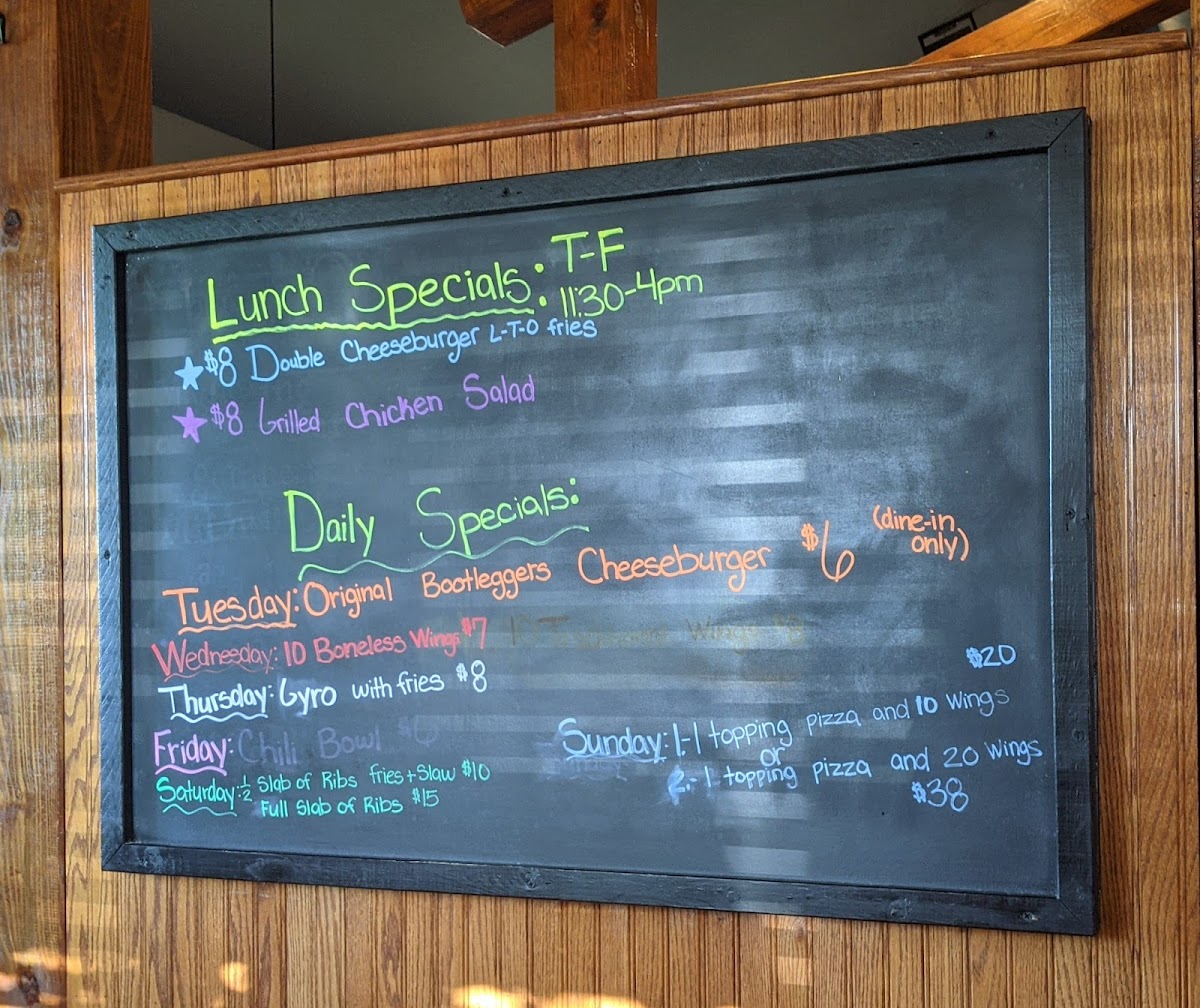 Lunch Specials: T-F
11:30-4pm
$8 Double Cheeseburger L-T-O fries
$8 Grilled Chicken Salad
Daily Specials:
Tuesday: Original Bootleggers Cheeseburger $6 (dine-in
only)
Wednesday: 10 Boneless Wings $7
Thursday: Gyro with fries $8
Friday: Chili Bowl $6
Saturday: ½ Slab of Ribs fries + Slaw $10
Full Slab of Ribs $15
$20
Sunday: 1.-1 topping pizza and 10 Wings
or
2.-1 topping pizza and 20 Wings
$38